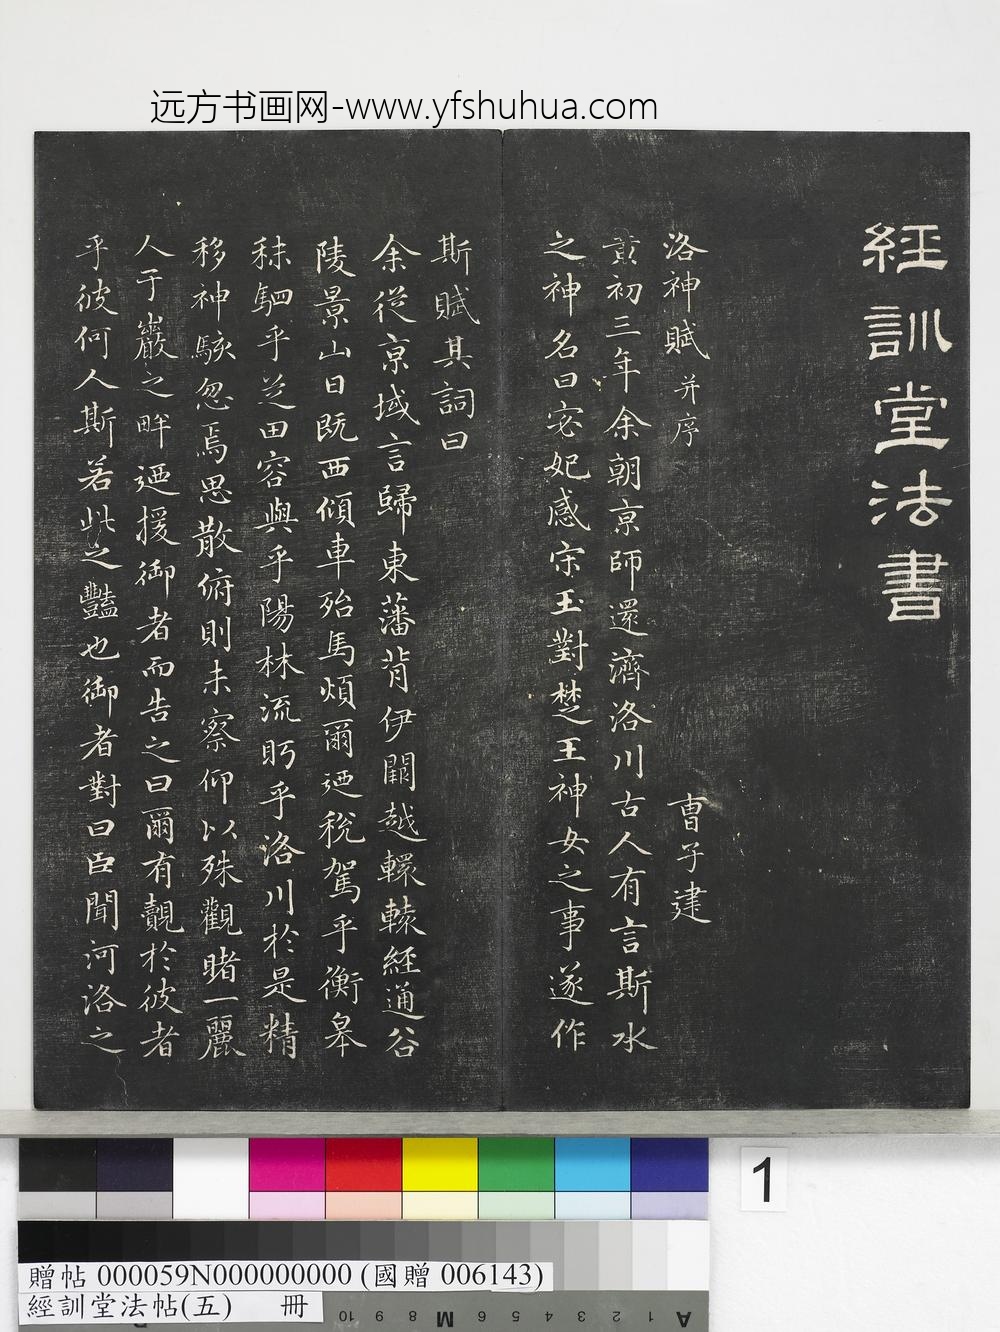 远方书画网-www.yfshuhua.com
經訓堂法書
洛神賦 并序 曺子建
黃初三年余朝京師還濟洛川古人有言斯水
之神名曰宓妃感宋玉對楚王神女之事遂作
斯賦其詞曰
余從京域言歸東藩背伊闕越轘轅經通谷
陵景山日既西傾車殆馬煩爾迺稅駕乎衡皋
秣駟乎芝田容與乎陽林流眄乎洛川於是精
移神駭忽焉思散俯則未察仰以殊觀睹一麗
人于巖之畔迺援御者而告之曰爾有覿於彼者
乎彼何人斯若此之豔也御者對曰臣聞河洛之
1
贈帖 000059N000000000 (國贈 006143)
經訓堂法帖(五) 冊
10 9 8 M 6 5 4 3 2 1 A